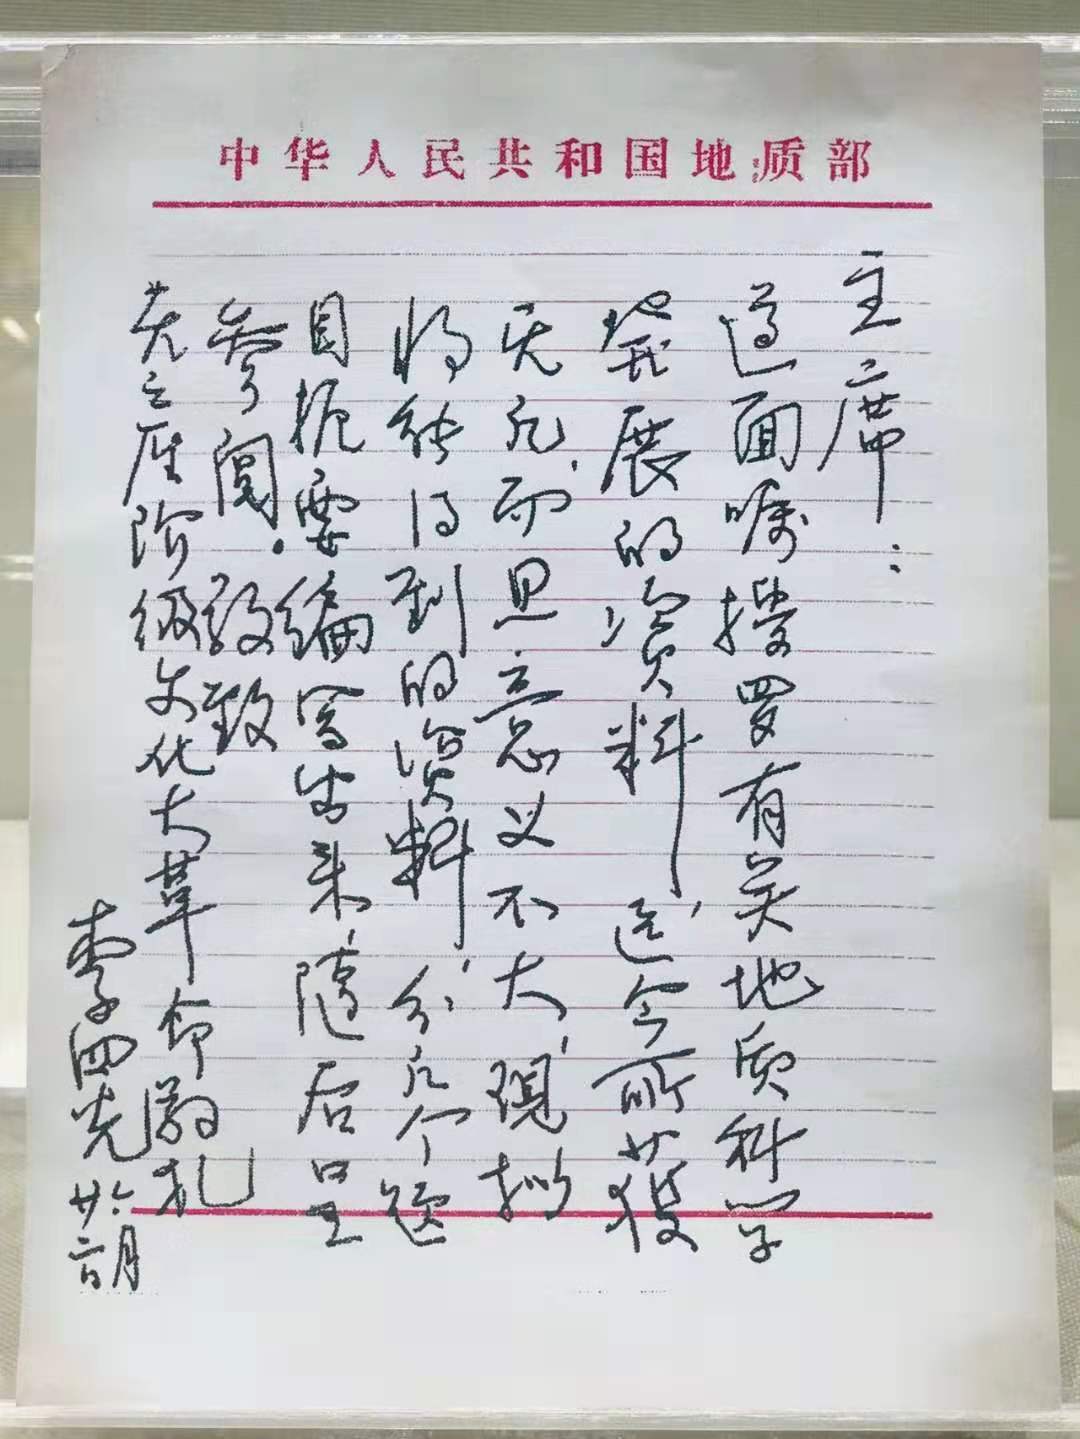 中华人民共和国地质部
主席：
遵面嘱搜罗有关地质科学
發展的资料，迄今所获
无几，而且意义不大，现拟
将能得到的资料，分几个题
目扼要编写出来，随后呈
参阅。敬致
无产阶级文化大革命敬礼
李四光